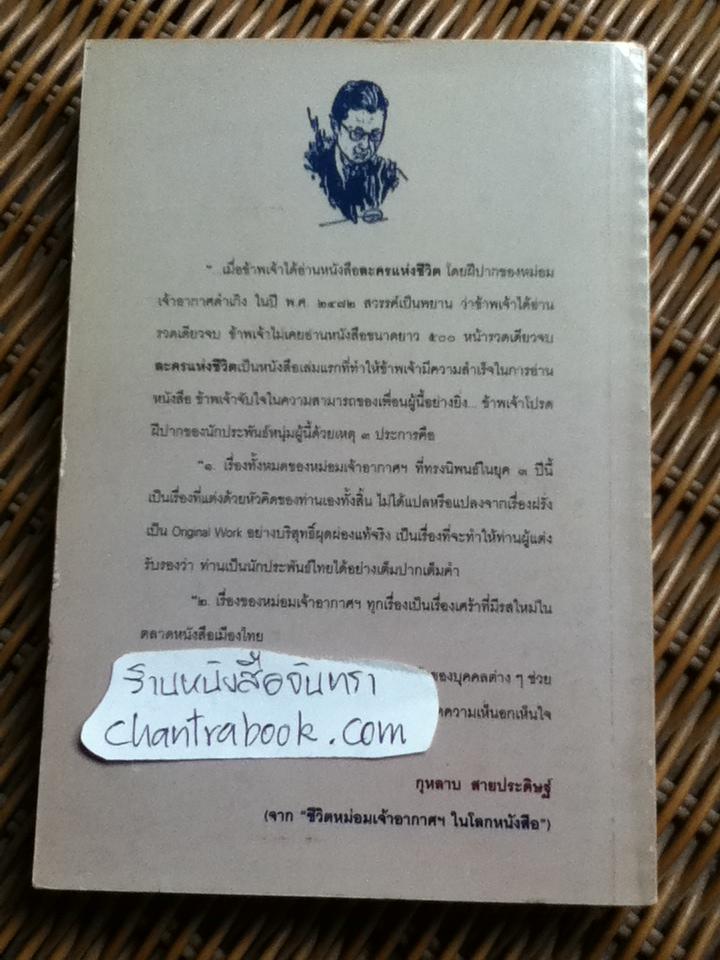 "...เมื่อข้าพเจ้าได้อ่านหนังสือละครแห่งชีวิต โดยฝีปากของหม่อม
เจ้าอากาศดำเกิง ในปี พ.ศ. ๒๔๘๒ สวรรค์เป็นพยาน ว่าข้าพเจ้าได้อ่าน
รวดเดียวจบ ข้าพเจ้าไม่เคยอ่านหนังสือขนาดยาว ๕๐๐ หน้ารวดเดียวจบ
ละครแห่งชีวิตเป็นหนังสือเล่มแรกที่ทำให้ข้าพเจ้ามีความสำเร็จในการอ่าน
หนังสือ ข้าพเจ้าจับใจในความสามารถของเพื่อนผู้นี้อย่างยิ่ง... ข้าพเจ้าโปรด
ฝีปากของนักประพันธ์หนุ่มผู้นี้ด้วยเหตุ ๓ ประการคือ
"๑. เรื่องทั้งหมดของหม่อมเจ้าอากาศฯ ที่ทรงนิพนธ์ในยุค ๓ ปีนี้
เป็นเรื่องที่แต่งด้วยหัวคิดของท่านเองทั้งสิ้น ไม่ได้แปลหรือแปลงจากเรื่องฝรั่ง
เป็น Original Work อย่างบริสุทธิ์ผุดผ่องแท้จริง เป็นเรื่องที่จะทำให้ท่านผู้แต่ง
รับรองว่า ท่านเป็นนักประพันธ์ไทยได้อย่างเต็มปากเต็มคำ
"๒. เรื่องของหม่อมเจ้าอากาศฯ ทุกเรื่องเป็นเรื่องเศร้าที่มีรสใหม่ใน
ตลาดหนังสือเมืองไทย
ของบุคคลต่าง ๆ ช่วย
ความเห็นอกเห็นใจ
ร้านหนังสือจันทรา
chantrabook.com
กุหลาบ สายประดิษฐ์
(จาก "ชีวิตหม่อมเจ้าอากาศฯ ในโลกหนังสือ")